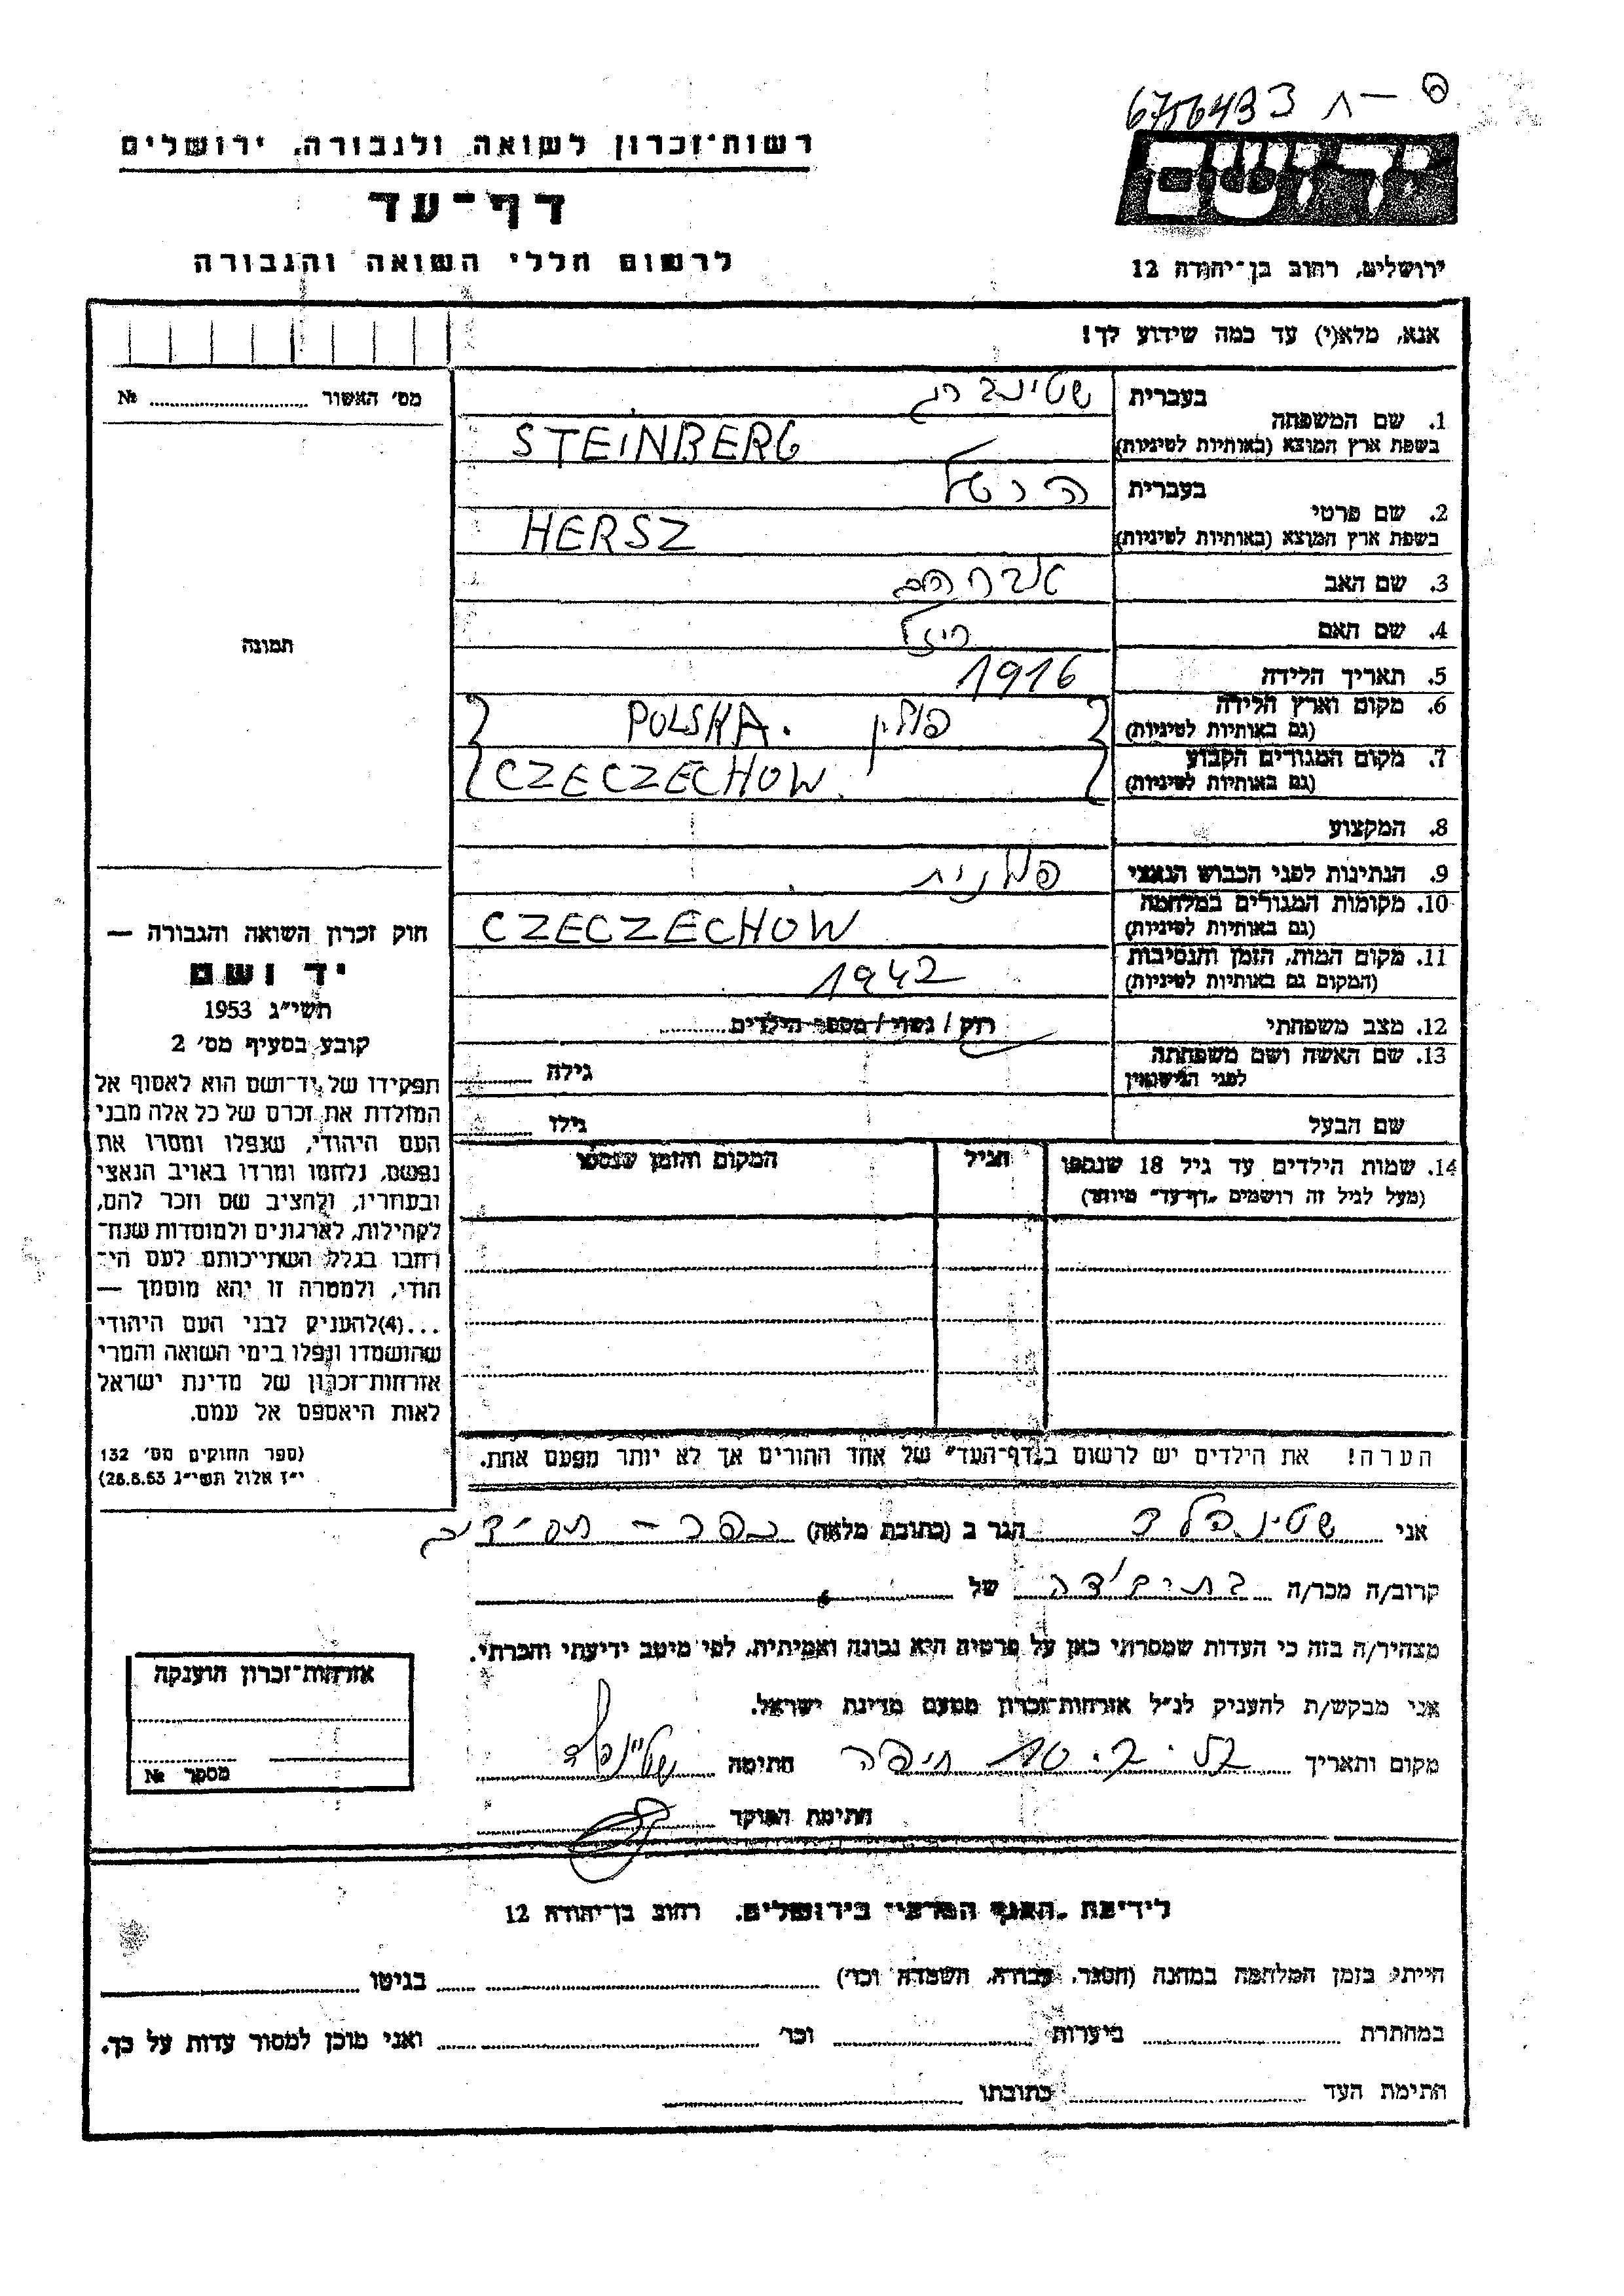 6756433
רשות־זכרון לשואה ולגבורה, ירושלים
יד ושם
דף־עד
לרשום חללי השואה והגבורה
ירושלים, רחוב בן־יהודה 12
אנא, מלא(י) עד כמה שידוע לך!
מס׳ האשור № 
1. שם המשפחה בעברית שטינברג
בשפת ארץ המוצא (באותיות לטיניות) STEINBERG
2. שם פרטי בעברית
בשפת ארץ המוצא (באותיות לטיניות) HERSZ
3. שם האב אברהם
4. שם האם
5. תאריך הלידה 1916
6. מקום וארץ הלידה (גם באותיות לטיניות) פולין POLSKA.
7. מקום המגורים הקבוע (גם באותיות לטיניות) CZECZECHOW
8. המקצוע
9. הנתינות לפני הכבוש הנאצי פולנית
10. מקומות המגורים במלחמה (גם באותיות לטיניות) CZECZECHOW
11. מקום המות, הזמן והנסיבות (המקום גם באותיות לטיניות) 1942
12. מצב משפחתי רוק / נשוי / מספר הילדים
13. שם האשה ושם משפחתה לפני הנישואין גילה
שם הבעל גילו
14. שמות הילדים עד גיל 18 שנספו הגיל המקום והזמן שנספו
(מעל לגיל זה רושמים „דף־עד״ מיוחד)
הערה! את הילדים יש לרשום ב„דף־העד״ של אחד ההורים אך לא יותר מפעם אחת.
תמונה
חוק זכרון השואה והגבורה —
יד ושם
תשי״ג 1953
קובע בסעיף מס׳ 2
תפקידו של יד־ושם הוא לאסוף אל
המולדת את זכרם של כל אלה מבני
העם היהודי, שנפלו ומסרו את
נפשם, נלחמו ומרדו באויב הנאצי
ובעוזריו, ולהציב שם וזכר להם,
לקהילות, לארגונים ולמוסדות שנח־
רבו בגלל השתייכותם לעם הי־
הודי, ולמטרה זו יהא מוסמך —
...(4)להעניק לבני העם היהודי
שהושמדו ונפלו בימי השואה והמרי
אזרחות־זכרון של מדינת ישראל
לאות היאספם אל עמם.
(ספר החוקים מס׳ 132
י״ז אלול תשי״ג 28.8.53)
אני שטינפלד הגר ב (כתובת מלאה) כפר - חסידים
קרוב/ה מכר/ה של
מצהיר/ה בזה כי העדות שמסרתי כאן על פרטיה היא נכונה ואמיתית, לפי מיטב ידיעתי והכרתי.
אני מבקש/ת להעניק לנ״ל אזרחות־זכרון מטעם מדינת ישראל.
מקום ותאריך חיפה חתימה שטיינפלד
חתימת הפוקד
אזרחות־זכרון הוענקה
מספר №
לידיעת „האגף המרכזי״ בירושלים, רחוב בן־יהודה 12
הייתי בזמן המלחמה במחנה (הסגר, עבודה, השמדה וכו׳) בגיטו
במחתרת ביערות וכו׳ ואני מוכן למסור עדות על כך.
חתימת העד כתובתו